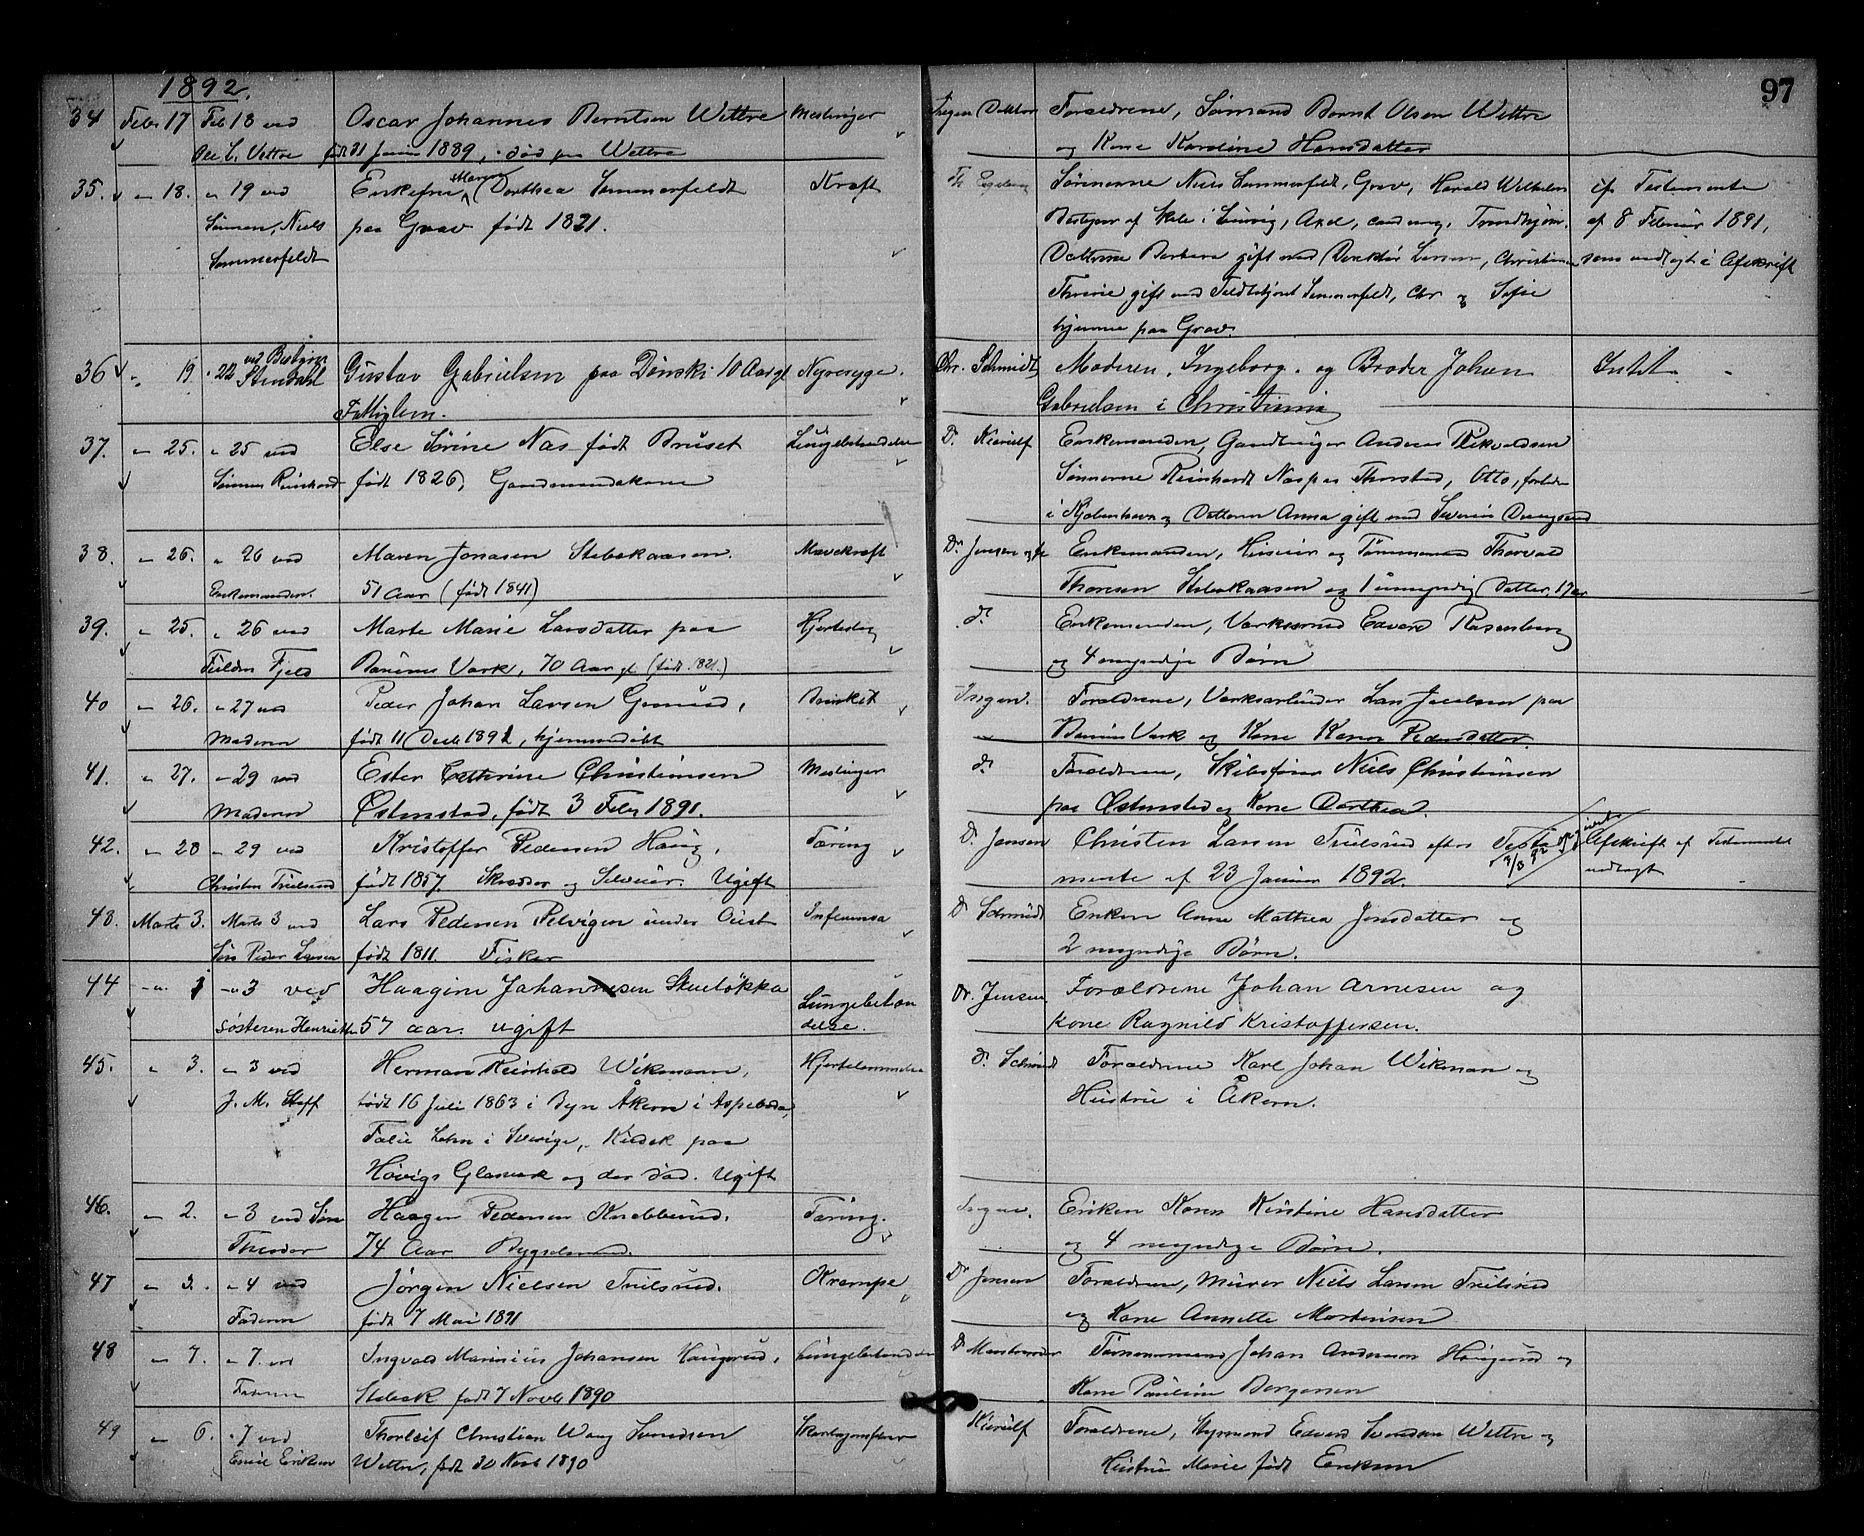 97
1892.
34 Febr 17 Feb 18 ved Oscar Johannes Berntsen Wettre Meslinger Ingen Doktor Forældrene, Sømand Bernt Olsen Wettre
Ole L. Vettre født 31 1889, død paa Wettre og Kone Karoline Hansdatter
35. " 18. " 19 ved Enkefru Maren Dorthea Sommerfeldt Kræft Sønnerne Niels Sommerfeldt, Grav, Harald Wilhelm if Testamente
Sønnen, Niels paa Grav født 1821. Bestyrer af Skole i Axel, cand. Trondhjem. af 8 Februar 1891,
Sommerfeldt Døttrene Barbara gift med Direktør Larsen, Christiania som vedlagt i Afskrift
gift med Sommerfeldt, Chr og Sofie
hjemme paa Grav
36 " 19 " 22 ved Bestyrer Gustav Gabrielsen paa Dønski 10 Aar gl Nyresyge. Dr. Schmidt Moderen, Ingeborg. og Broder Johan Intet
Stendahl Fattiglem. Gabrielsen i Christiania
37. " 25. " 25 ved Else Sørine Næs født Bruset Lungebetændelse D. Kierulf Enkemanden, Gaardbruger Anders
Sønnen Reinhard født 1826, Gaardmandskone Sønnerne Reinhardt Næs paa Thorstad, Otto,
i Kjøbenhavn og Datteren Anna gift med Severin
38. " 26. " 26 ved Maren Jonasen Stabekaasen. Mavekræft Dr Jensen Enkemanden, Huseier og Tømmermand Thorvald
Enkemanden. 51 Aar (født 1841) Thoresen Stabekaasen og 1 umyndig Datter, 17 aar
39. " 25. " 26 ved Marte Marie Larsdatter paa Hjerteslag do Enkemanden, Værksmand Edvard Rosenberg
Fjeld Bærums Værk, 70 Aar gl (født 1821.) og 4 myndige Børn
40 " 26. " 27 ved Peder Johan Larsen Grinud, Ingen. Forældrene, Værksarbeider Lars Jacobsen paa
Moderen født 11 Decb 1891, hjemmedøbt Bærums Værk og Kone Karen Pedersdatter.
41. " 27. " 29 ved Ester Cathrine Christiansen Meslinger do Forældrene, Skibsfører Niels Christiansen
Moderen Østenstad, født 3 Febr 1891. paa Østenstad og Kone Dorthea.
42. " 28 " 29 ved Kristoffer Pedersen Haug, Tæring D. Jensen Christen Larsen Trulsrud efter Testa- Afskrift af Testamentet
Christen Trulsrud født 1857. Skrædder og Selveier. Ugift mente af 23 Januar 1892. vedlagt
43. Marts 3. Marts 3 ved Lars Pedersen Pelvigen under Oust Influensa D Schmidt Enken Anne Mathea Jonsdatter og
Søn Peder Larsen født 1811. Fisker 2 myndige Børn.
44 " 1 " 3 ved Haagine Johannesen Stueløkka Lungebetæn Dr. Jensen Forældrene Johan Arnesen og
søsteren Henriette 57 aar. ugift delse. kone Ragnild Kristoffersen.
45. " 3. " 3 ved Herman Reinhold Wikmann, Hjertelammelse D. Schmidt Forældrene Karl Johan Wikman og
J. M. Staff født 16 Juli 1863 i Byn Åkern i Aspeboda, Hustru i Åkern.
Falu Lehn i Sverige, Kudsk paa
Høvigs Glasværk og der død. Ugift
46. " 2. " 3 ved Søn Haagen Pedersen Knabberud. Tæring. Ingen. Enken Karen Kirstine Hansdatter
Theodor 74 Aar Bygselmand. og 4 myndige Børn.
47 " 3. " 4 ved Jørgen Nielsen Trulsrud. Krampe Dr Jensen Forældrene, Murer Niels Larsen Trulsrud
Faderen født 7 Mai 1891 og Kone Annette Mortensen
48 " 7. " 7. ved Ingvald Marinius Johansen Haugerud, Lungebetændelse D Tømmermand Johan Andersen Haugerud og
Faderen Stabæk født 7 Novb 1890 Kone Pauline Borgersen
49 " 6. " 7 ved Thorleif Christian Wang Svendsen Skarlagensfeber Kierulf Forældrene, Styrmand Edvard Svendsen Wettre og
Emil Eriksen Wettre, født 30 Novb 1890 Hustru Marie født Eriksen